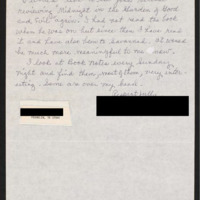 reviewing "Midnight in the Garden of Good
and Evil" again. I had not read the book
when he was on but since then I have read
it and have also been to Savannah. It would
be much more meaningful to me now.
I look at Book Notes every Sunday
night and find them, most of them, very inter-
esting. Some are over my head.